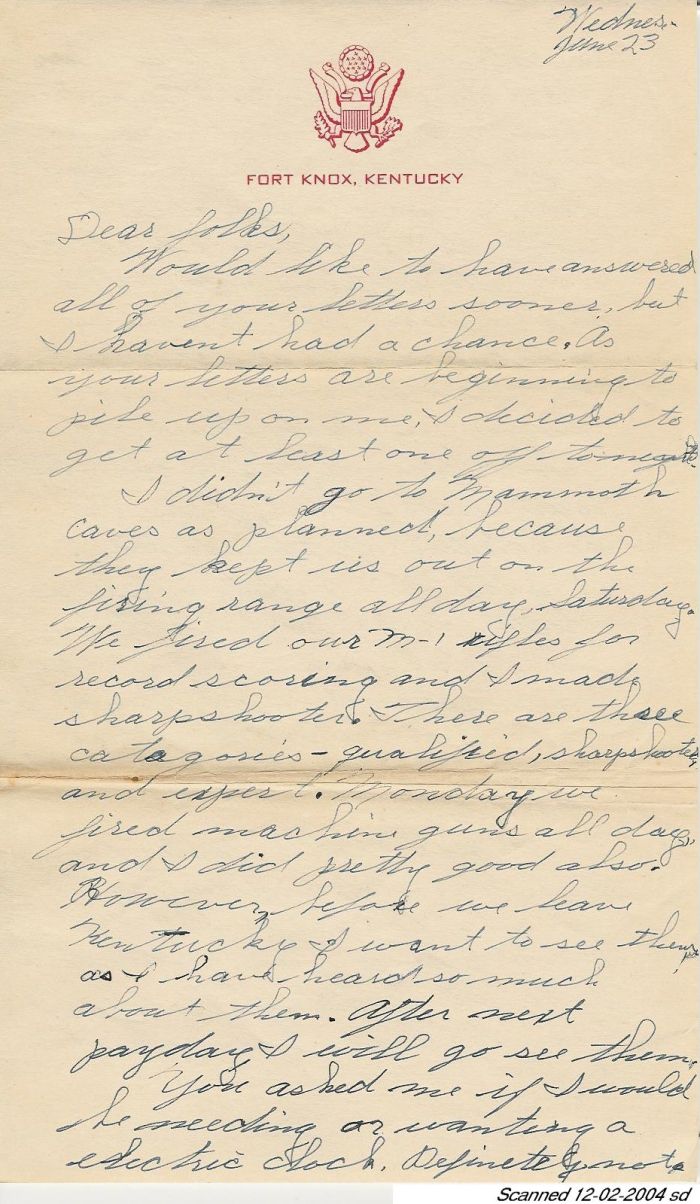 Wednes.
June 23
FORT KNOX, KENTUCKY
Dear folks,
Would like to have answered
all of your letters sooner, but
I havent had a chance. As
your letters are beginning to
pile up on me, I decided to
get at least one off tonight.
I didn't go to Mammoth
Caves as planned, because
they kept us out on the
firing range all day, Saturday.
We fired our M-1 rifles for
record scoring and I made
sharpshooter. There are three
catagories - qualified, sharpshooter,
and expert. Monday we
fired machine guns all day,
and I did pretty good also.
However, before we leave
Kentucky I want to see them,
as I have heard so much
about them. After next
payday I will go see them.
You asked me if I would
be needing or wanting a
electric clock. Definetely not.
Scanned 12-02-2004 sd